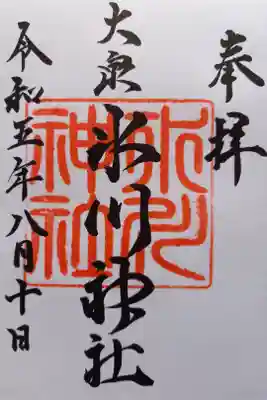 奉拝
大泉
氷川神社
令和五年八月十日
氷川
神社